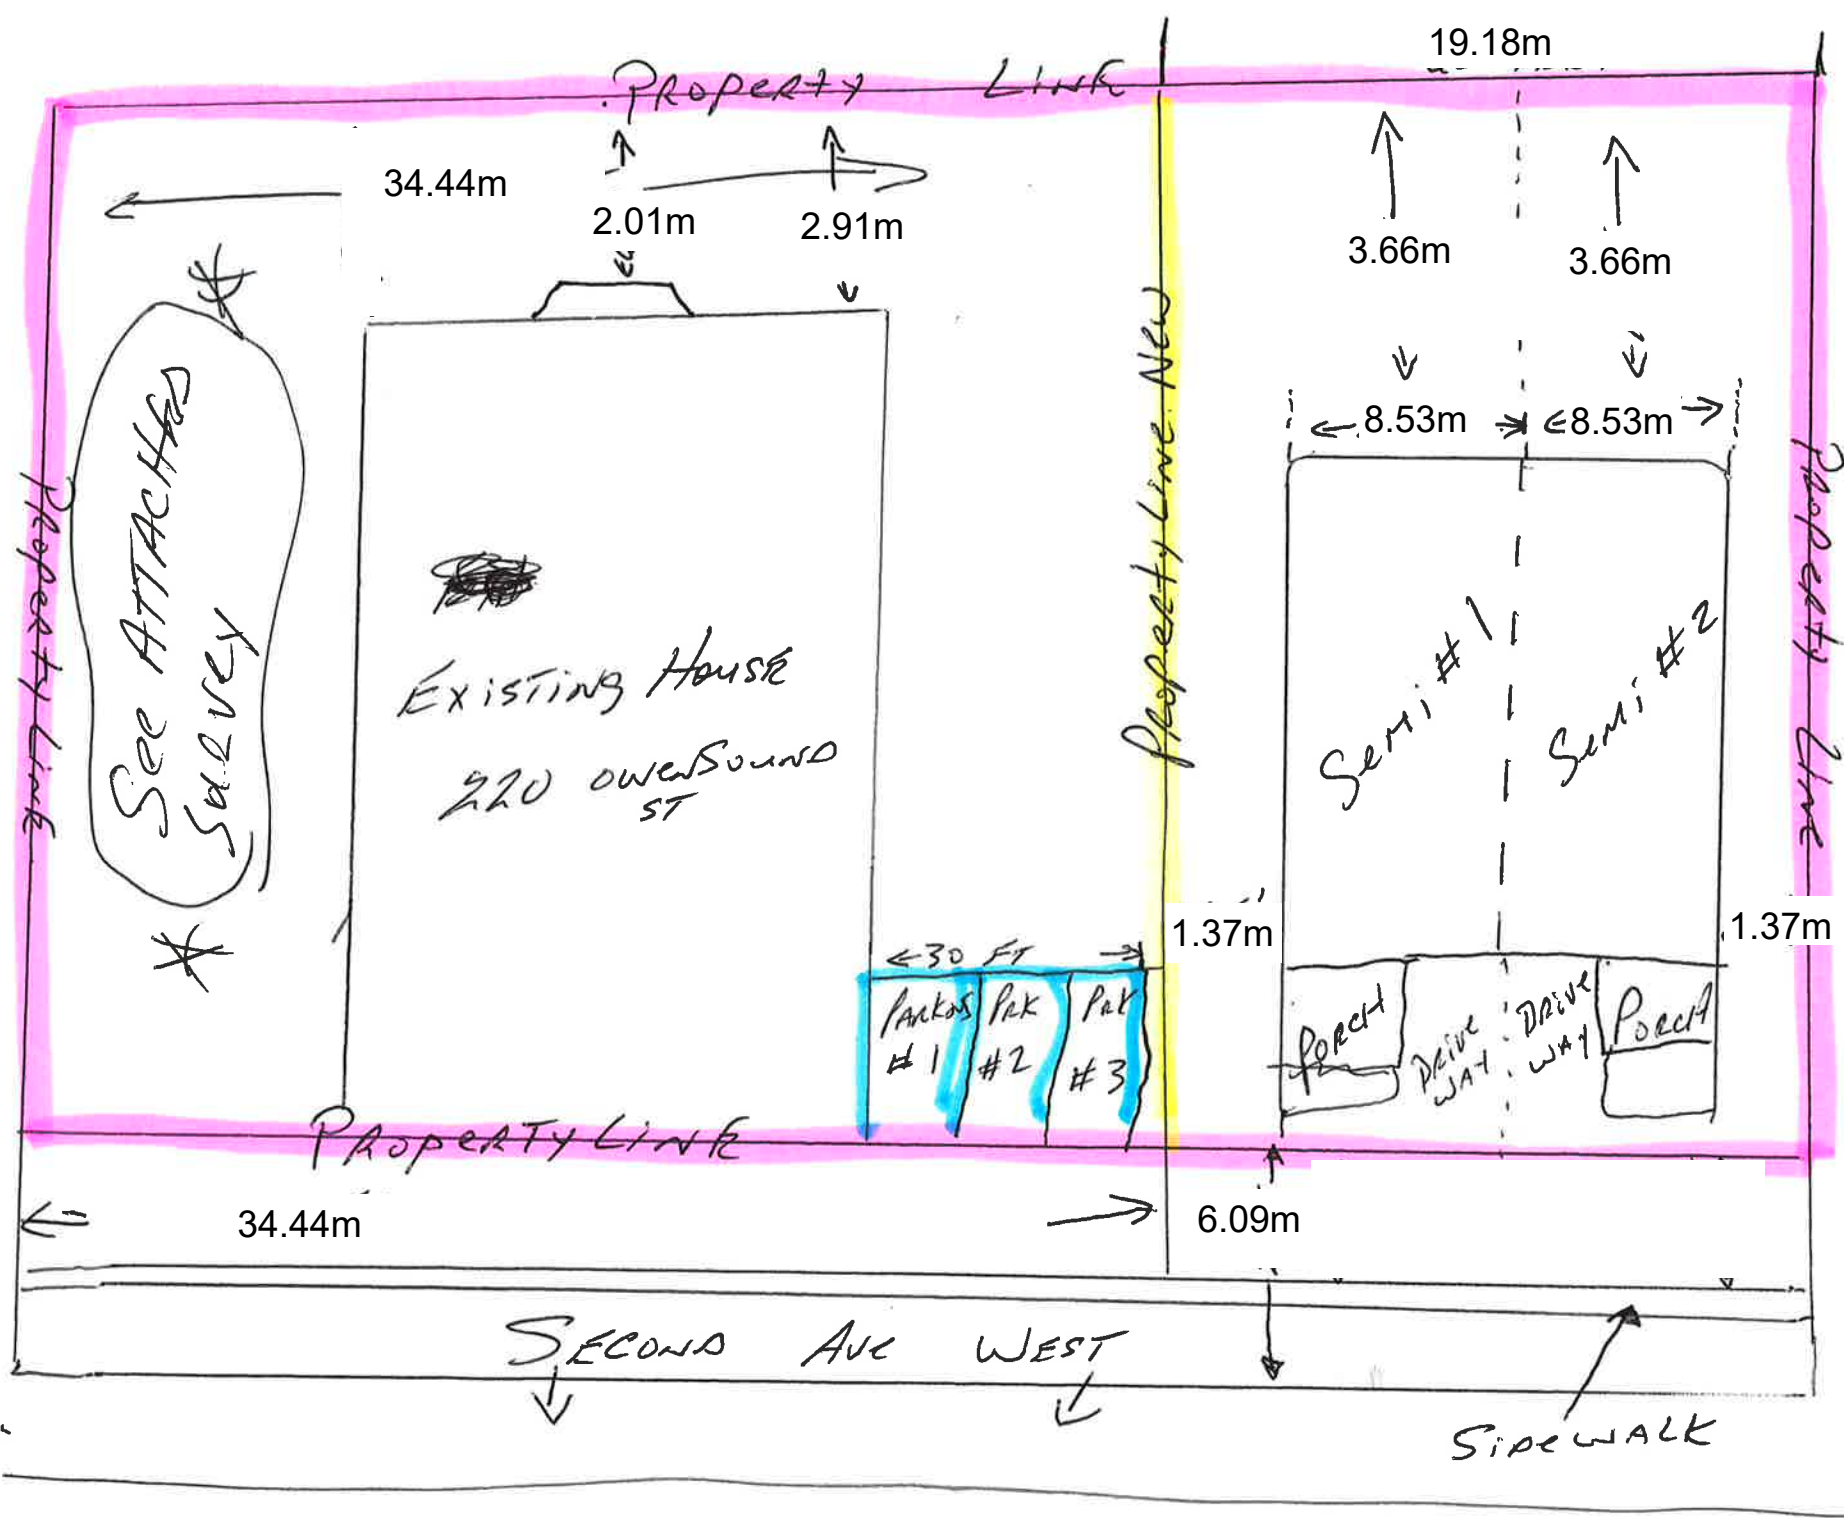 19.18m
Property Line
34.44m
2.01m
2.91m
3.66m
3.66m
8.53m
8.53m
Property Line
See Attached
Survey
Existing House
220 Owen Sound
ST
Property Line New
Semi #1
Semi #2
Property Line
1.37m
1.37m
30 FT
Parking
#1
Prk
#2
Prk
#3
Porch
Drive
way
Drive
way
Porch
Property Line
34.44m
6.09m
Second Ave West
Sidewalk